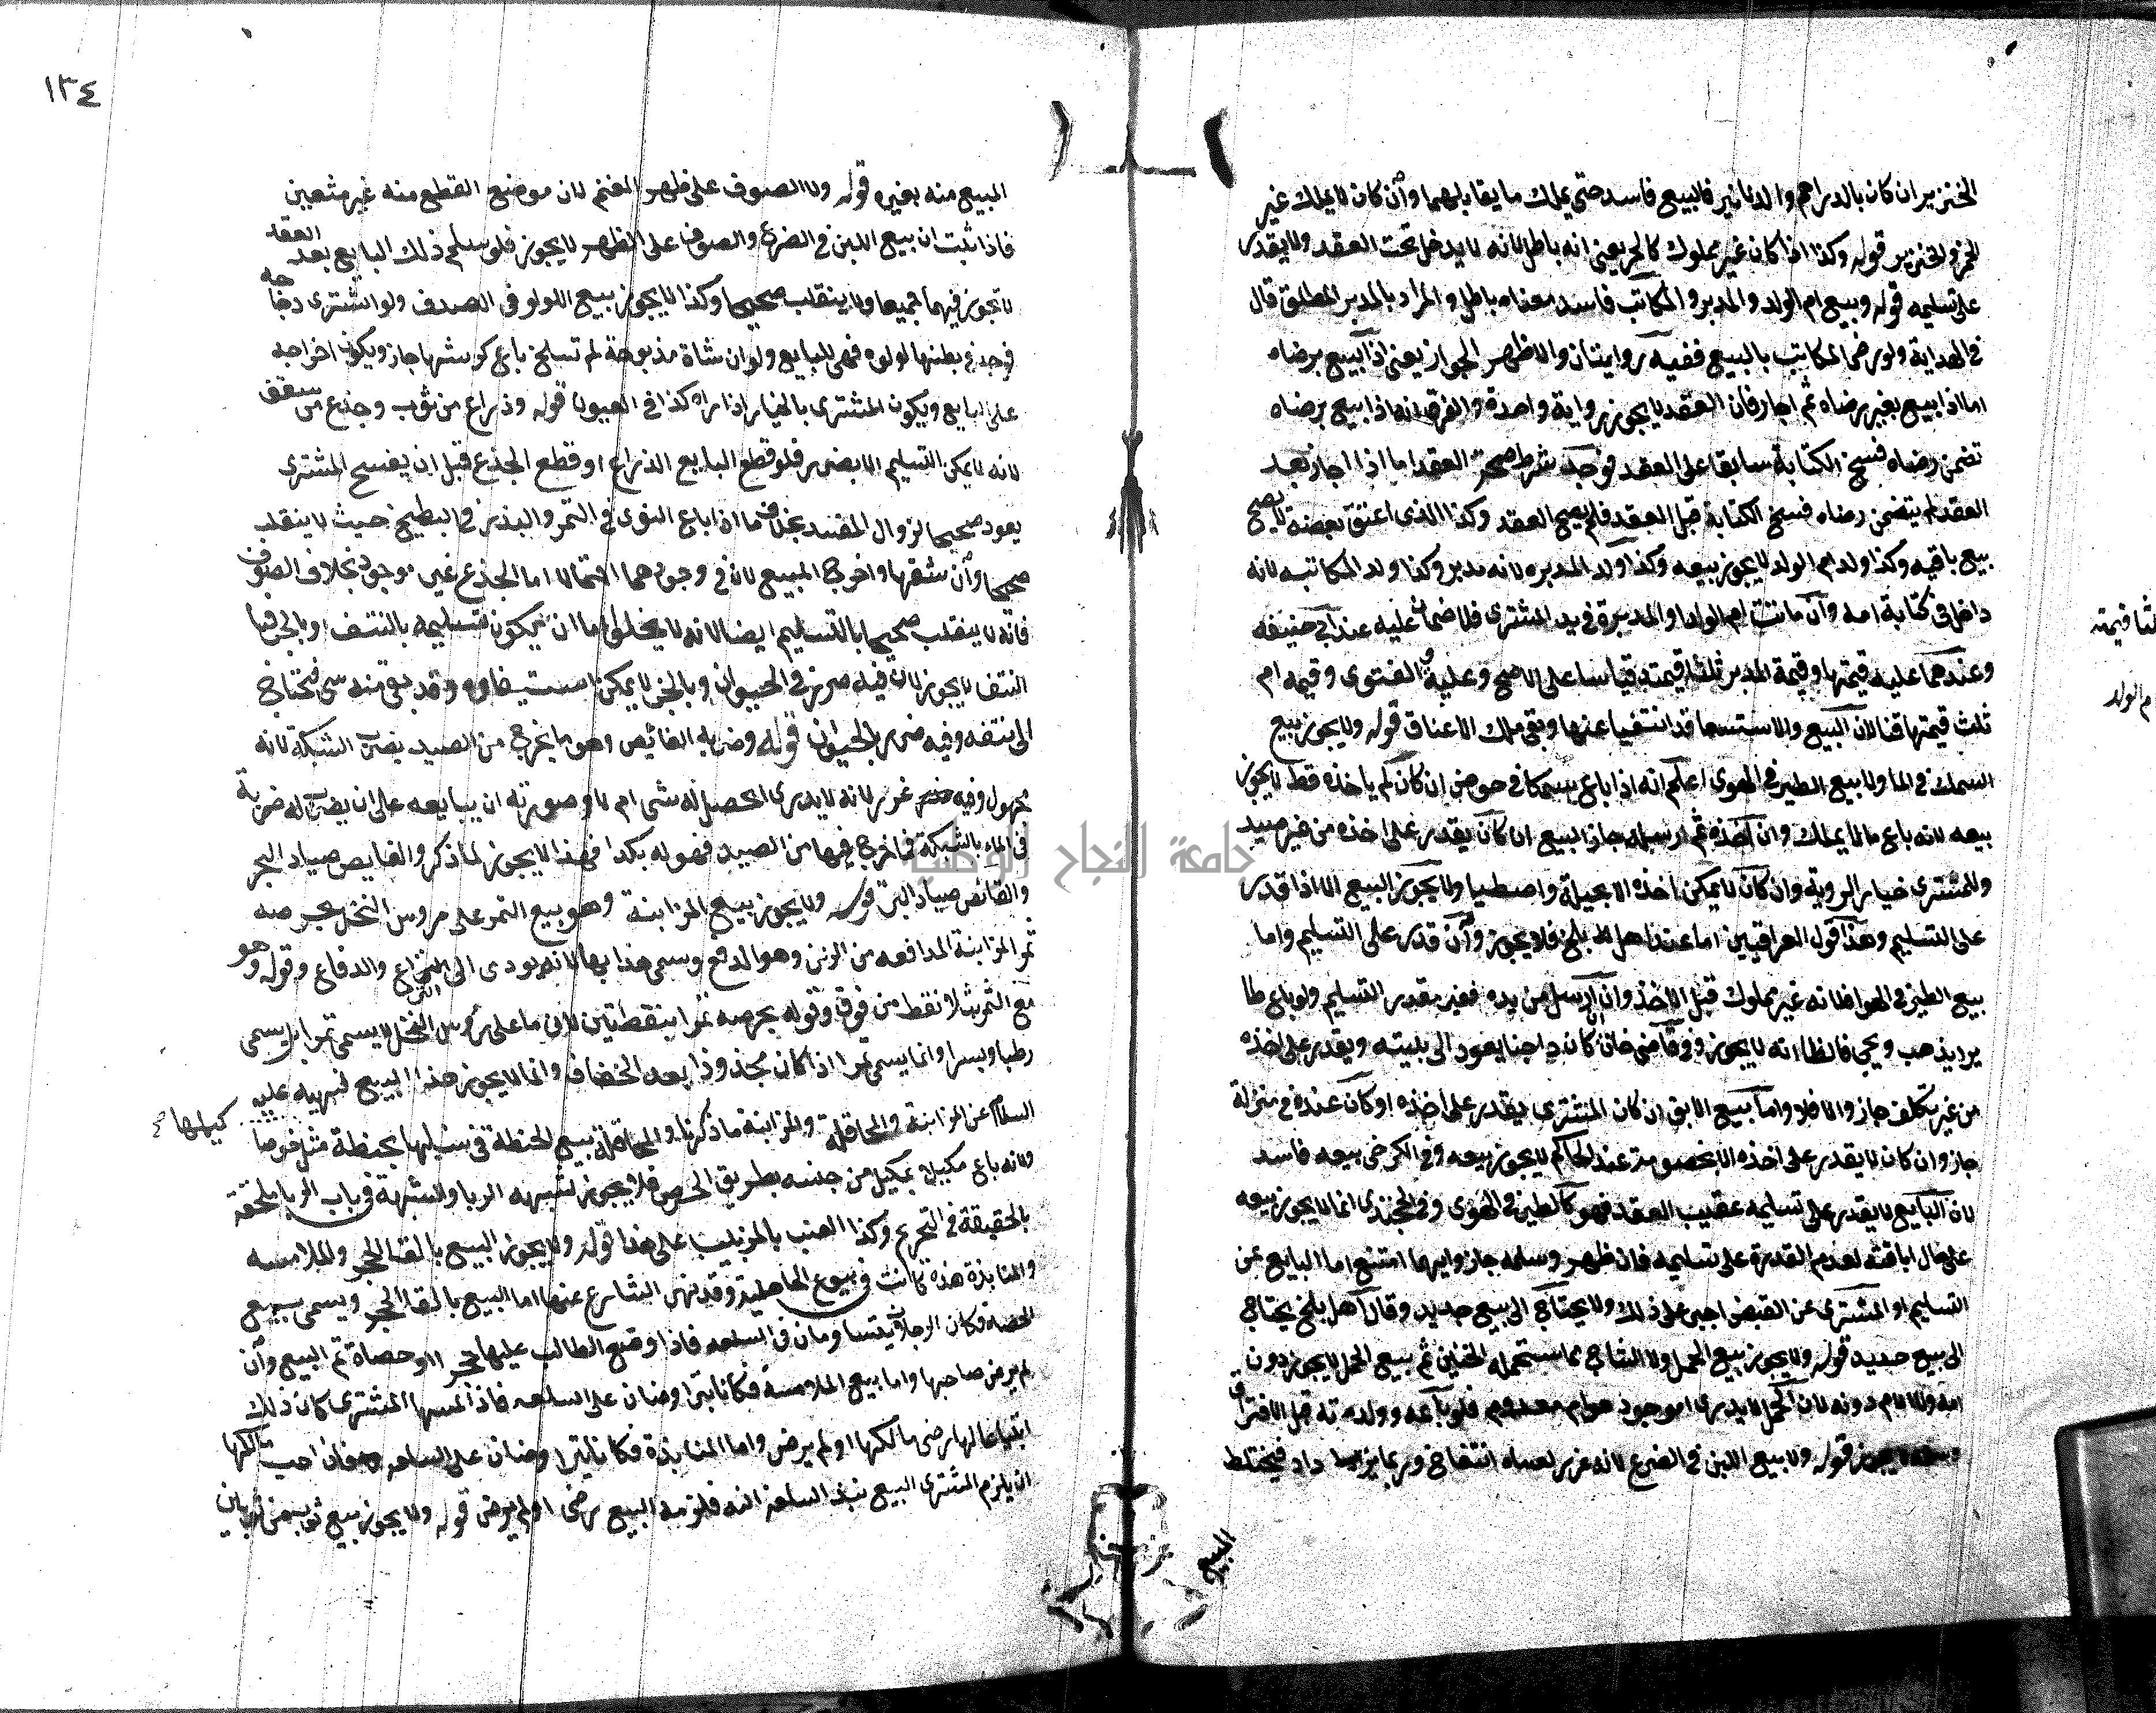 الخنزير ان كان بالدراهم والدنانير فالبيع فاسد حتى يملك ما يقابلهما وان كان لا يملك غير
الخمر والخنزير قوله وكذا اذا كان غير مملوك كالحر يعني انه باطل لانه لا يدخل تحت العقد ولا يقدر
على تسليمه قوله وبيع ام الولد والمدبر والمكاتب فاسد معناه باطل والمراد بالمدبر المطلق قال
في الهداية ولو رضى المكاتب بالبيع ففيه روايتان والاظهر الجواز يعني اذا بيع برضاه
اما اذا بيع بغير رضاه ثم اجاز فان العقد لا يجوز رواية واحدة والفرق انه اذا بيع برضاه
تضمن رضاه فسخ الكتابة سابقا على العقد فوجد شرط صحة العقد اما اذا اجاز بعد
العقد لم يتضمن رضاه فسخ الكتابة قبل العقد فلم يصح العقد وكذا الذى اعتق بعضه لا يصح
بيع باقيه وكذا ولد ام الولد لا يجوز بيعه وكذا ولد المدبره لانه مدبر وكذا ولد المكاتبه لانه
داخل في كتابة امه وان ماتت ام الولد او المدبرة في يد المشترى فلا ضمان عليه عند ابي حنيفه
وعندهما عليه قيمتها وقيمة المدبر ثلثا قيمته قياسا على الاصح وعليه الفتوى وقيمة ام
ثلث قيمتها قنا لان البيع والاستسعا قد انتفيا عنها وبقي ملك الاعتاق قوله ولا يجوز بيع
السمك في الما ولا بيع الطير في الهوى اعلم انه اذا باع سمكا في حوض ان كان لم ياخذه قط لا يجوز
بيعه لانه باع ما لا يملك وان اخذه ثم ارسله جاز البيع ان كان يقدر على اخذه من غير صيد
وللمشترى خيار الروية وان كان لا يمكن اخذه الا بحيلة واصطيا ولا يجوز البيع الا اذا قدر
على التسليم وهذا قول العراقيين اما عند اهل بلخ فلا يجوز وان قدر على التسليم واما
بيع الطير في الهوا فلانه غير مملوك قبل الاخذ وان ارسل من يده فغير مقدر التسليم ولو باع طا
يرا يذهب ويجي فالظا انه لا يجوز وفي قاضي خان ان كان داجنا يعود الى بيته ويقدر على اخذه
من غير تكلف جاز والا فلا واما بيع الابق ان كان المشترى يقدر على اخذه او كان عنده في منزلة
جاز وان كان لا يقدر على اخذه الا بخصومة عند الحاكم لا يجوز بيعه وفي الكرخى بيعه فاسد
لان البايع لا يقدر على تسليمه عقيب العقد فهو كالطير في الهوى وفي الخجندي انما لا يجوز بيعه
على حال اباقته لعدم القدرة على تسليمه فان ظهر وسلمه جاز وايهما امتنع اما البايع عن
التسليم او المشترى عن القبض اجبر على ذلك ولا يحتاج الى بيع جديد وقال اهل بلخ يحتاج
الى بيع جديد قوله ولا يجوز بيع الحمل ولا النتاج ثم بيع الحمل لا يجوز دون
امه ولا الام دونه لان الحمل لا يدرى اموجود هو ام معدوم فلو باعه وولدته قبل الافتراق
وسلمه لا يجوز قوله ولا بيع اللبن في الضرع لانه غرر لعساه انتفاخ وربما يزداد فيختلط
البيع
ثلثا قيمته
ام الولد
١٣٤
المبيع منه بغيره قوله ولا الصوف على ظهر الغنم لان موضع القطع منه غير متعين
فاذا ثبت ان بيع اللبن في الضرع والصوف على الظهر لا يجوز فلو سلم ذلك البايع بعد العقد
لا تجوز فيهما جميعا ولا ينقلب صحيحا وكذا لا يجوز بيع اللولو في الصدف ولو اشترى دجاجه
فوجد في بطنها لولوه فهي للبايع ولو ان شاة مذبوحة لم تسلخ باع كرشها جاز ويكون اخراجه
على البايع ويكون المشترى بالخيار اذا راه كذا في العيون قوله وذراع من ثوب وجذع من سقف
لانه لا يمكن التسليم الا بضرر فلو قطع البايع الذراع او قطع الجذع قبل ان يفسخ المشترى
يعود صحيحا لزوال المفسد بخلاف ما اذا باع النوى في التمر والبذر في البطيخ حيث لا ينقلب
صحيحا وان شقها واخرج المبيع لان في وجودهما احتمالا اما الجذع عين موجود بخلاف الصوف
فانه لا ينقلب صحيحا بالتسليم ايضا لانه لا يخلو اما ان يكون تسليمه بالنتف او بالجز فبا
النتف لا يجوز لان فيه ضررا في الحيوان وبالجز لا يمكن استيفاوه وقد بقي منه شي فيحتاج
الى نتفه وفيه ضرر بالحيوان قوله وضربة الغائص وهو ما يخرج من الصيد بضرب الشبكة لانه
مجهول وفيه غرر لانه لا يدرى ايحصل له شى ام لا وصورته ان يبايعه على ان يضرب له ضربة
في الماء بالشبكة فما خرج فيها من الصيد فهو له بكذا فهذا لا يجوز لما ذكر والغايص صياد البحر
والقانص صياد البر قوله ولا يجوز بيع المزابنة وهو بيع الثمر على روس النخل بخرصه
ثمر المزابنة المدافعه من الزبن وهو الدفع وسمى هذا بها لانه يودى الى النزاع والدفاع وقوله وهو
بيع الثمر بثلاث نقط من فوق وقوله بخرصه تمرا بنقطتين لان ما على رؤس النخل لا يسمى تمرا بل يسمى
رطبا وبسرا وانما يسمى تمرا اذا كان مجذوذا بعد الجفاف وانما لا يجوز هذا البيع لنهيه عليه
السلام عن المزابنة والمحاقلة والمزابنة ما ذكرنا والمحاقلة بيع الحنطة في سنبلها بحنطة مثل كيلها خرصا
ولانه باع مكيلا بمكيل من جنسه بطريق الخرص فلا يجوز لشبهه الربا والشبهة في باب الربا ملحقة
بالحقيقة في التحريم وكذا العنب بالزبيب على هذا قوله ولا يجوز البيع بالقا الحجر والملامسه
والمنابذة هذه كانت في بيوع الجاهلية وقد نهى الشارع عنها اما البيع بالقا الحجر ويسمى ببيع
الحصاة فكان الرجلان يتساومان في السلعه فاذا وضع الطالب عليها حجرا او حصاة تم البيع وان
لم يرض صاحبها واما بيع الملامسة فكانا يتراوضان على السلعه فاذا لمسها المشترى كان ذلك
ابتياعا لها رضى مالكها او لم يرض واما المنابذة فكانا يتراوضان على السلعه فان احب مالكها
ان يلزم المشترى البيع نبذ السلعة اليه فلزمه البيع رضى او لم يرض قوله ولا يجوز بيع ثوب من ثوبين
جامعة النجاح الوطنية